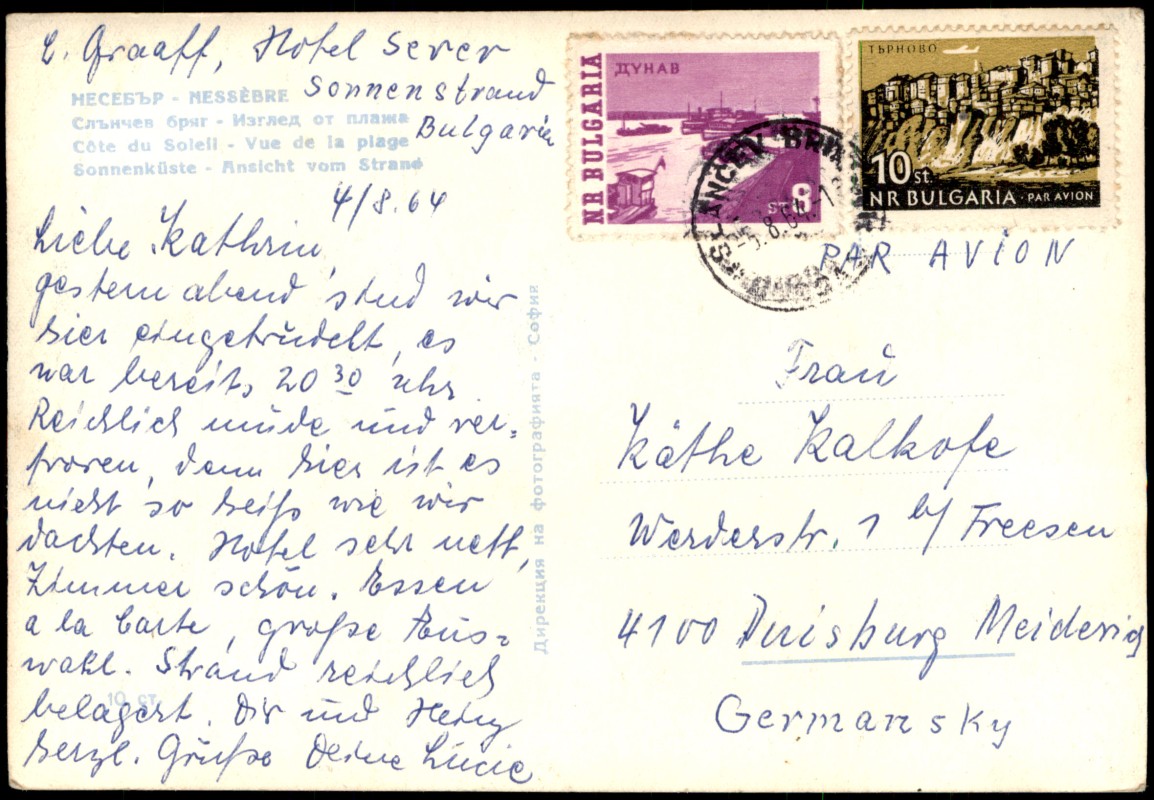 E. Graaff, Hotel Sever
Sonnenstrand
Bulgaria
НЕСЕБЪР - MESSÈBRE
Слънчев бряг - Изглед от плажа
Côte du Soleil - Vue de la plage
Sonnenküste - Ansicht vom Strand
4/8.64
Liebe Kathrin,
gestern abend sind wir
hier eingetrudelt, es
war bereits 20 30 Uhr
Reichlich müde und ver-
froren, denn hier ist es
nicht so heiß wie wir
dachten. Hotel sehr nett,
Zimmer schön. Essen
a la Carte, große Aus-
wahl. Strand reichlich
belagert. Dir und Heinz
herzl. Grüße Deine Lucie
10 ст.
Дирекция на фотографията - София
NR BULGARIA
ДУНАВ
8
ТЪРНОВО
10 st.
NR BULGARIA - PAR AVION
SLANCEV BRIAG
5.8.64
PAR AVION
Frau
Käthe Kalkofe
Werderstr. 1 b/ Freesen
4100 Duisburg Meiderich
Germansky